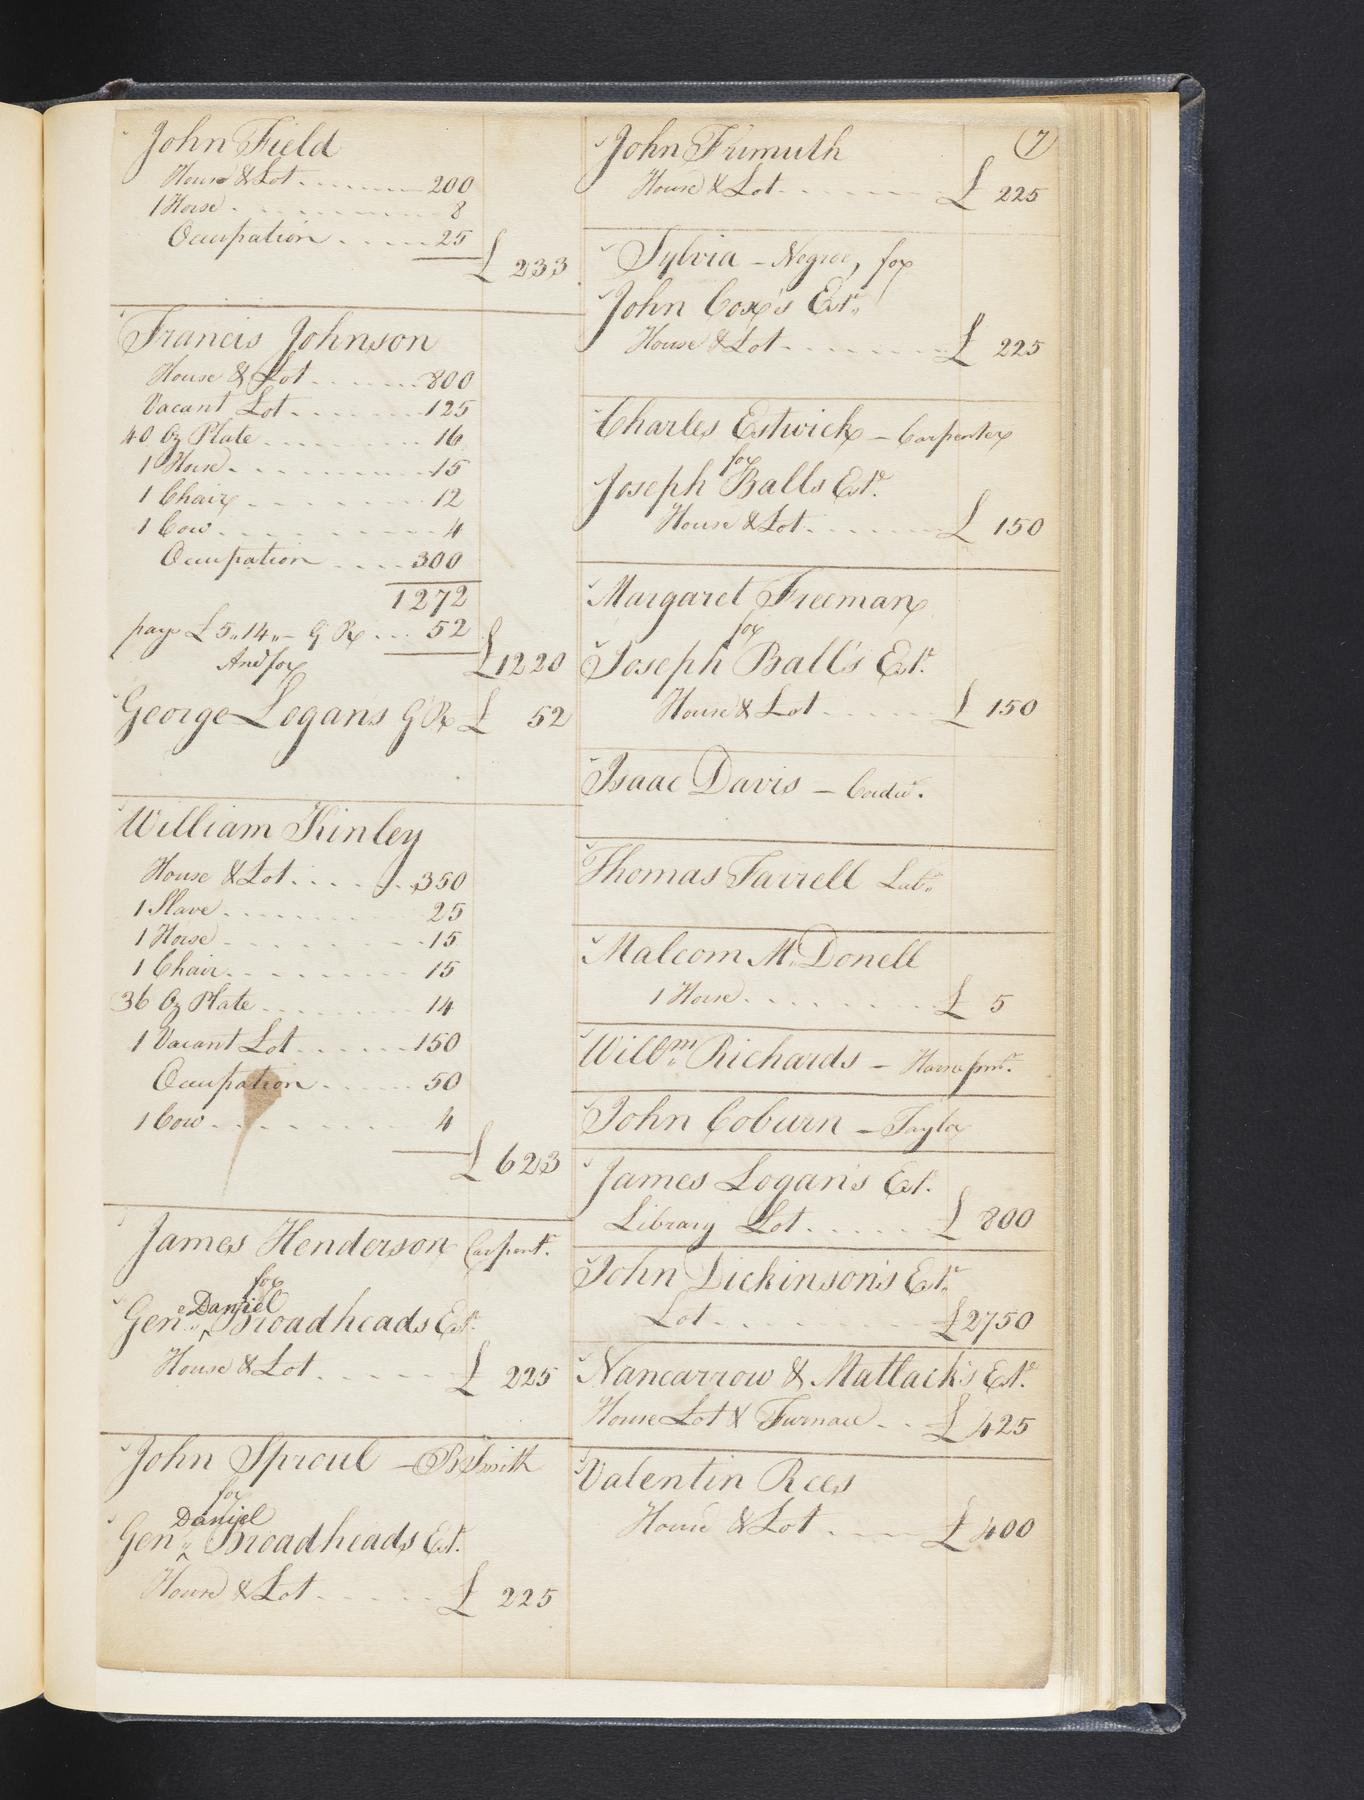 John Field
House & Lot 200
1 Horse 8
Occupation 25
£ 233
Francis Johnson
House & Lot 800
Vacant Lot 125
40 Oz Plate 16
1 Horse 15
1 Chair 12
1 Cow 4
Occupation 300
1272
pays £5"14"- G Rt 52
And for £1220
George Logan's G Rt £ 52
William Kinley
House & Lot 350
1 Slave 25
1 Horse 15
1 Chair 15
36 Oz Plate 14
1 Vacant Lot 150
Occupation 50
1 Cow 4
£ 623
James Henderson Carpentr.
for
Daniel
Genl. Broadheads Estr.
House & Lot £ 225
John Sproul - B Smith
for
Daniel
Genl. Broadheads Est.
House & Lot £ 225
7
John Frimuth
House & Lot £ 225
Sylvia - Negroe, for
John Cox's Este.
House & Lot £ 225
Charles Estwick - Carpenter
for
Joseph Balls Este.
House & Lot £ 150
Margaret Freeman
for
Joseph Ball's Este.
House & Lot £ 150
Isaac Davis - Cordwr.
Thomas Farrell Labr.
Malcom Mc.Donell
1 Horse £ 5
Willm. Richards -
John Coburn - Taylor
James Logan's Est.
Library Lot £ 800
John Dickinson's Este.
Lot £2750
Nancarrow & Matlack's Este.
House Lot & Furnace £ 425
Valentin Rees
House & Lot £ 400